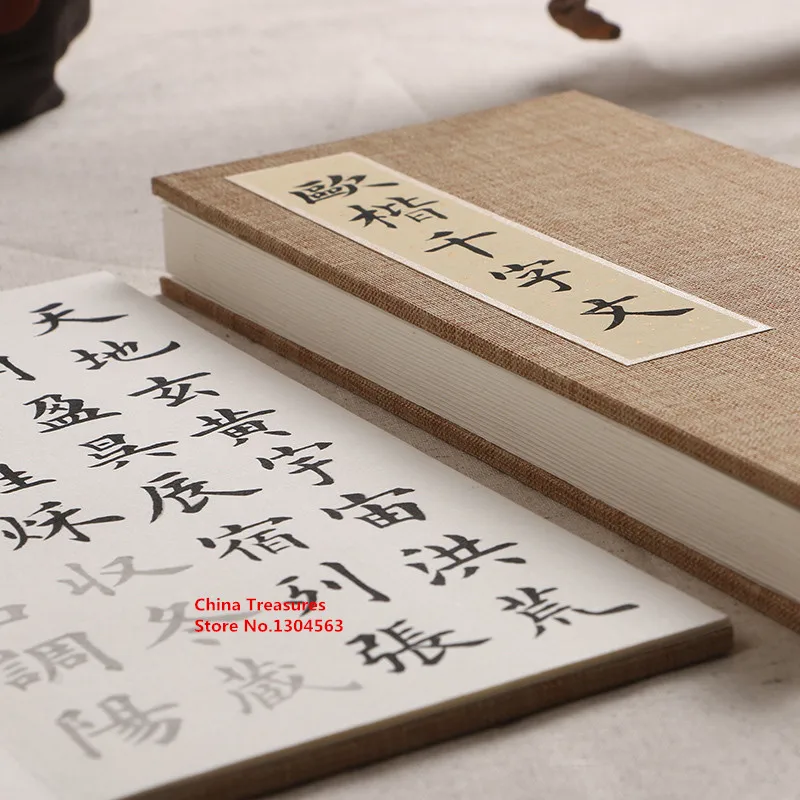 歐楷千字文
天地玄黃宇宙洪荒
月盈昃辰宿列張
秋收冬藏
調陽
China Treasures
Store No.1304563